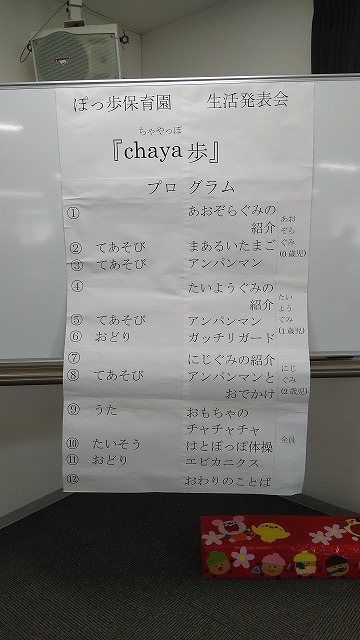 ぽっ歩保育園 生活発表会
ちゃやっぽ
『chaya歩』
プログラム
① あおぞらぐみの
紹介
② てあそび まあるいたまご
③ てあそび アンパンマン
あお
ぞら
ぐみ
(0歳児)
④ たいようぐみの
紹介
⑤ てあそび アンパンマン
⑥ おどり ガッチリガード
たい
よう
ぐみ
(1歳児)
⑦ にじぐみの紹介
⑧ てあそび アンパンマンと
おでかけ
にじ
ぐみ
(2歳児)
⑨ うた おもちゃの
チャチャチャ
⑩ たいそう はとぽっぽ体操
⑪ おどり エビカニクス
全員
⑫ おわりのことば